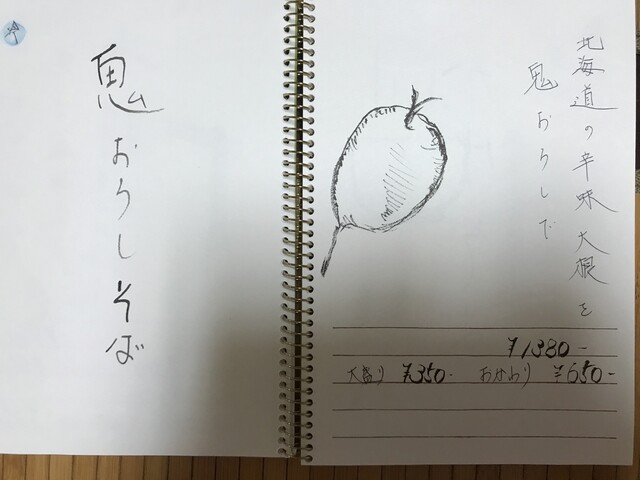 冷
鬼おろしそば
北海道の辛味大根を
鬼おろしで
¥1380-
大盛り ¥350- おかわり ¥650-